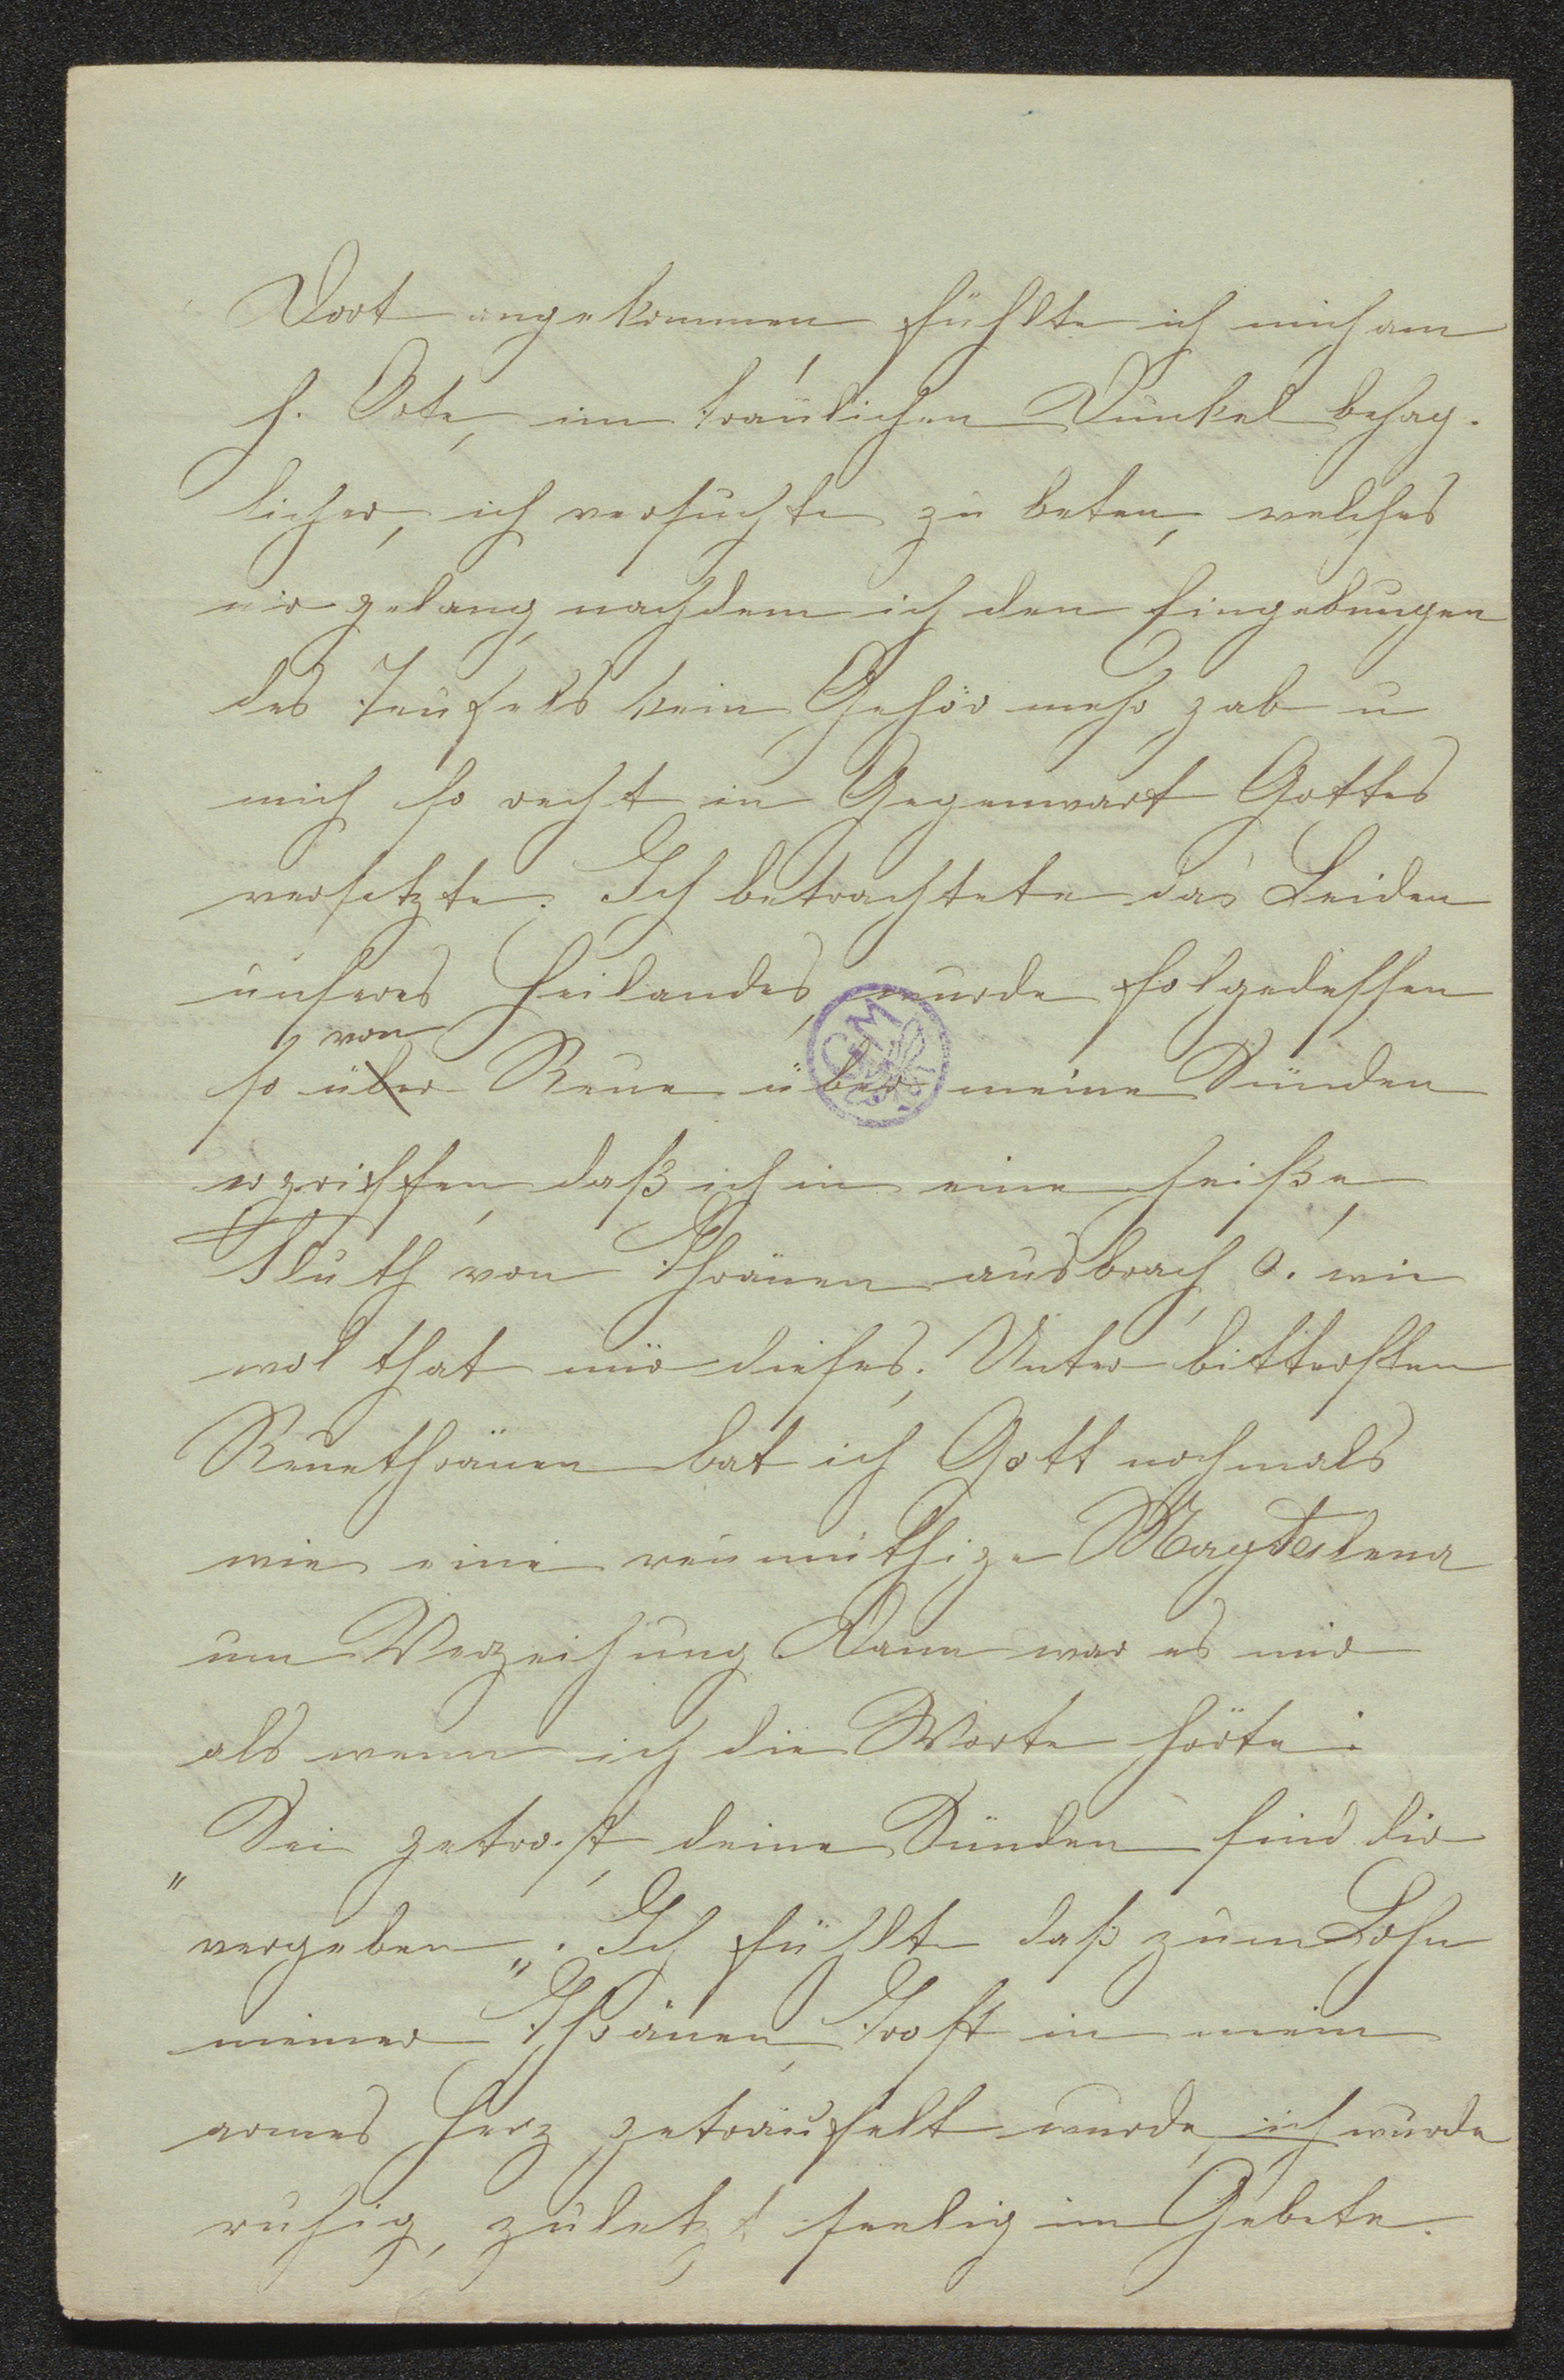 Dort angekommen, fühlte ich mich am
h. Orte, im traulichen Dunkel behag-
licher, ich versuchte zu beten, welches
mir gelang, nachdem ich den Eingebungen
des Teufels kein Gehör mehr gab u
mich so recht in Gegenwart Gottes
versetzte. Ich betrachtete das Leiden
unseres Heilandes, wurde folgedessen
von
so über Reue über meine Sünden
ergriffen, daß ich in eine heiße,
Fluth von Thränen ausbrach, O. wie
wol that mir dieses; Unter bittersten
Reuethränen bat ich Gott nochmals
wie eine reumüthige Magdalena
um Verzeihung. Dann war es mir
als wenn ich die Worte hörte:
„Sei getrost, deine Sünden sind dir
vergeben„. Ich fühlte daß zum Lohn
meiner Thränen, Trost in mein
armes Herz geträufelt wurde, ich wurde
ruhig, zuletzt seelig im Gebete.
GM